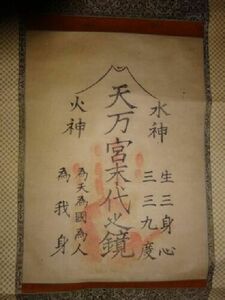 水神
生三身心
三三九度
天万宮末代之鏡
火神
為天為國為人
為我身